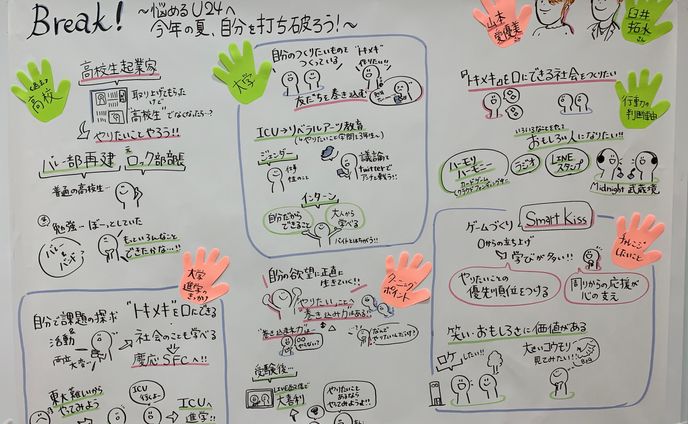 Break!
~悩めるU24へ
今年の夏、自分を打ち破ろう!~
山本
愛優美
さん
臼井
拓水
さん
高校
高校生起業家
取り上げてもらった
けど
"高校生"でなくなったら…?
やりたいことやろう!!
バレー部再建
元ロック部部長
普通の高校生…
勉強…ぼーっとしていた
バレーと
バンド?
もっといろんなこと
できたかな…!!
大学
自分のつくりたいものを
つくっている
"トキメキ"
作りたい!!
友だちを巻き込む
ICU→リベラルアーツ教育
ジェンダー
性のこと
議論して
twitterで
インターン
自分だから
できること
大人から
学べる
バイトとはちがう!!
行動の
判断理由
『トキメキ』を口にできる社会をつくりたい
いろいろなことをして
おもしろい人になりたい!!
ハーモリ
ハーモニー
カードゲーム
クラウドファンディング中
ラジオ
LINE
スタンプ
Midnight 武蔵境
チャレンジ
したいこと
ゲームづくり
Smart Kiss
0からの立ち上げ
学びが多い!!
やりたいことの
優先順位をつける
周りからの応援が
心の支え
笑い・おもしろさに価値がある
ロケしたい!!
大きいコウモリ
見てみたい!!
大学
進学の
きっかけ
自分で課題の探求
活動
"トキメキ"を口にできる
社会のことも学べる
慶応SFCへ!!
東大難しいから
やってみよう
ICUへ
進学!!
ターニング
ポイント
自分の欲望に正直に
生きていく!!
やりたいことへ
巻き込み力はある
"巻き込まれ力"は…?
〇〇
やらない?
なんで
やりたいんだっけ?
受験後…
LINE通話で
大喜利
やりたいこと
あるなら
やってみようよ!!